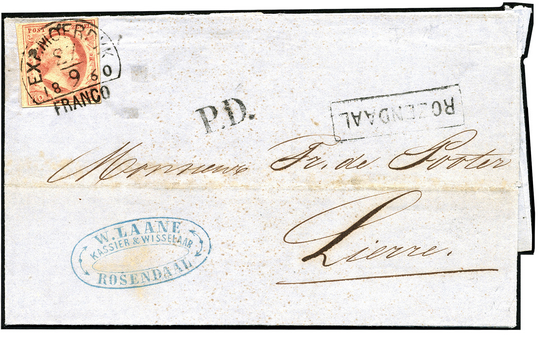 EXP. MOERDIJK
9
18 60
FRANCO
P.D.
ROZENDAAL
Monsieur Fr. de Pooter
Lierre.
W. LAANE
KASSIER & WISSELAAR
ROSENDAAL